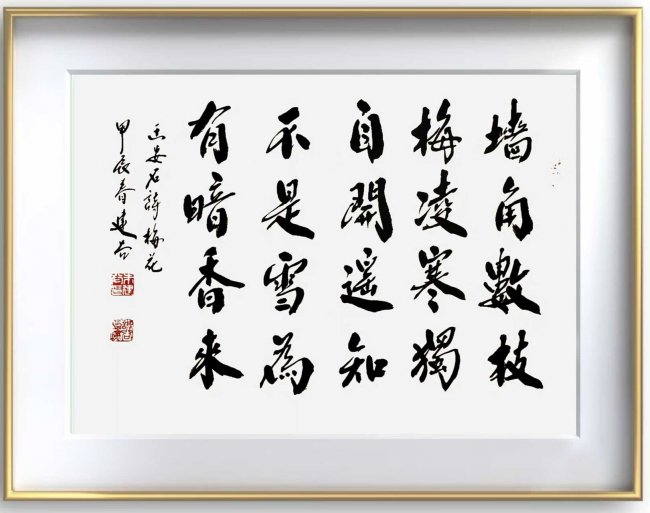 墙角數枝
梅凌寒獨
自開遥知
不是雪為
有暗香來
王安石詩梅花
甲辰春建谷